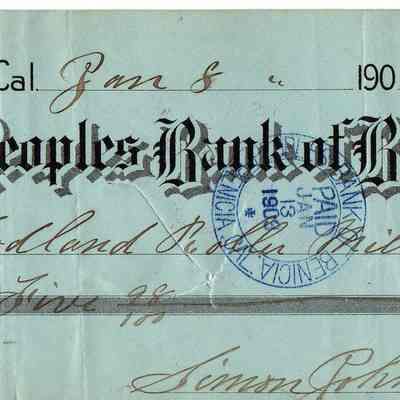 Cal. Jan 8 " 190
Peoples Bank of B
PAID
JAN
13
1908
BENICIA
BANK
odland Roller Mil
Five 98/100
Simon Joh